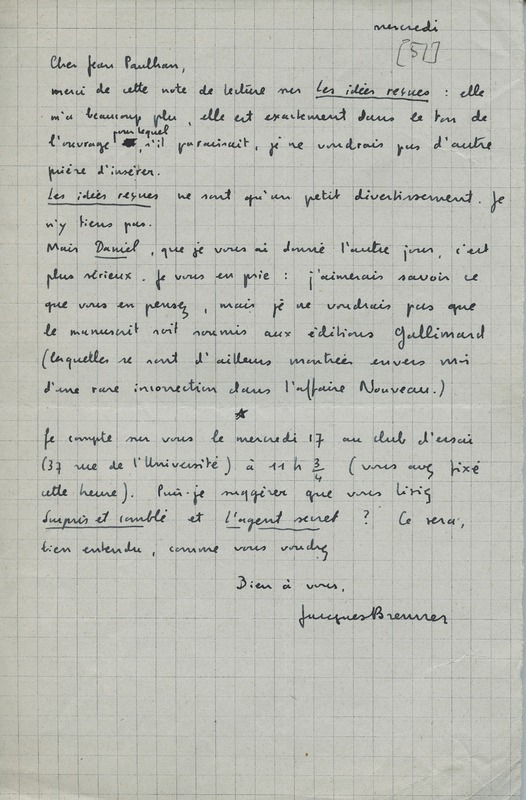 mercredi
[51]
Cher Jean Paulhan,
merci de cette note de lecture sur Les idées reçues : elle
m'a beaucoup plu, elle est exactement dans le ton de
pour lequel
l'ouvrage , s'il paraissait, je ne voudrais pas d'autre
prière d'insérer.
Les idées reçues ne sont qu'un petit divertissement. Je
n'y tiens pas.
Mais Daniel, que je vous ai donné l'autre jour, c'est
plus sérieux. Je vous en prie : j'aimerais savoir ce
que vous en pensez, mais je ne voudrais pas que
le manuscrit soit soumis aux éditions Gallimard
(lesquelles se sont d'ailleurs montrées envers moi
d'une rare incorrection dans l'affaire Nouveau.)
*
Je compte sur vous le mercredi 17 au club d'essai
(37 rue de l'Université) à 11 h 3/4 (vous avez fixé
cette heure). Puis-je suggérer que vous lisiez
Surpris et comblé et L'agent secret ? Ce sera,
bien entendu, comme vous voudrez
Bien à vous,
Jacques Brenner